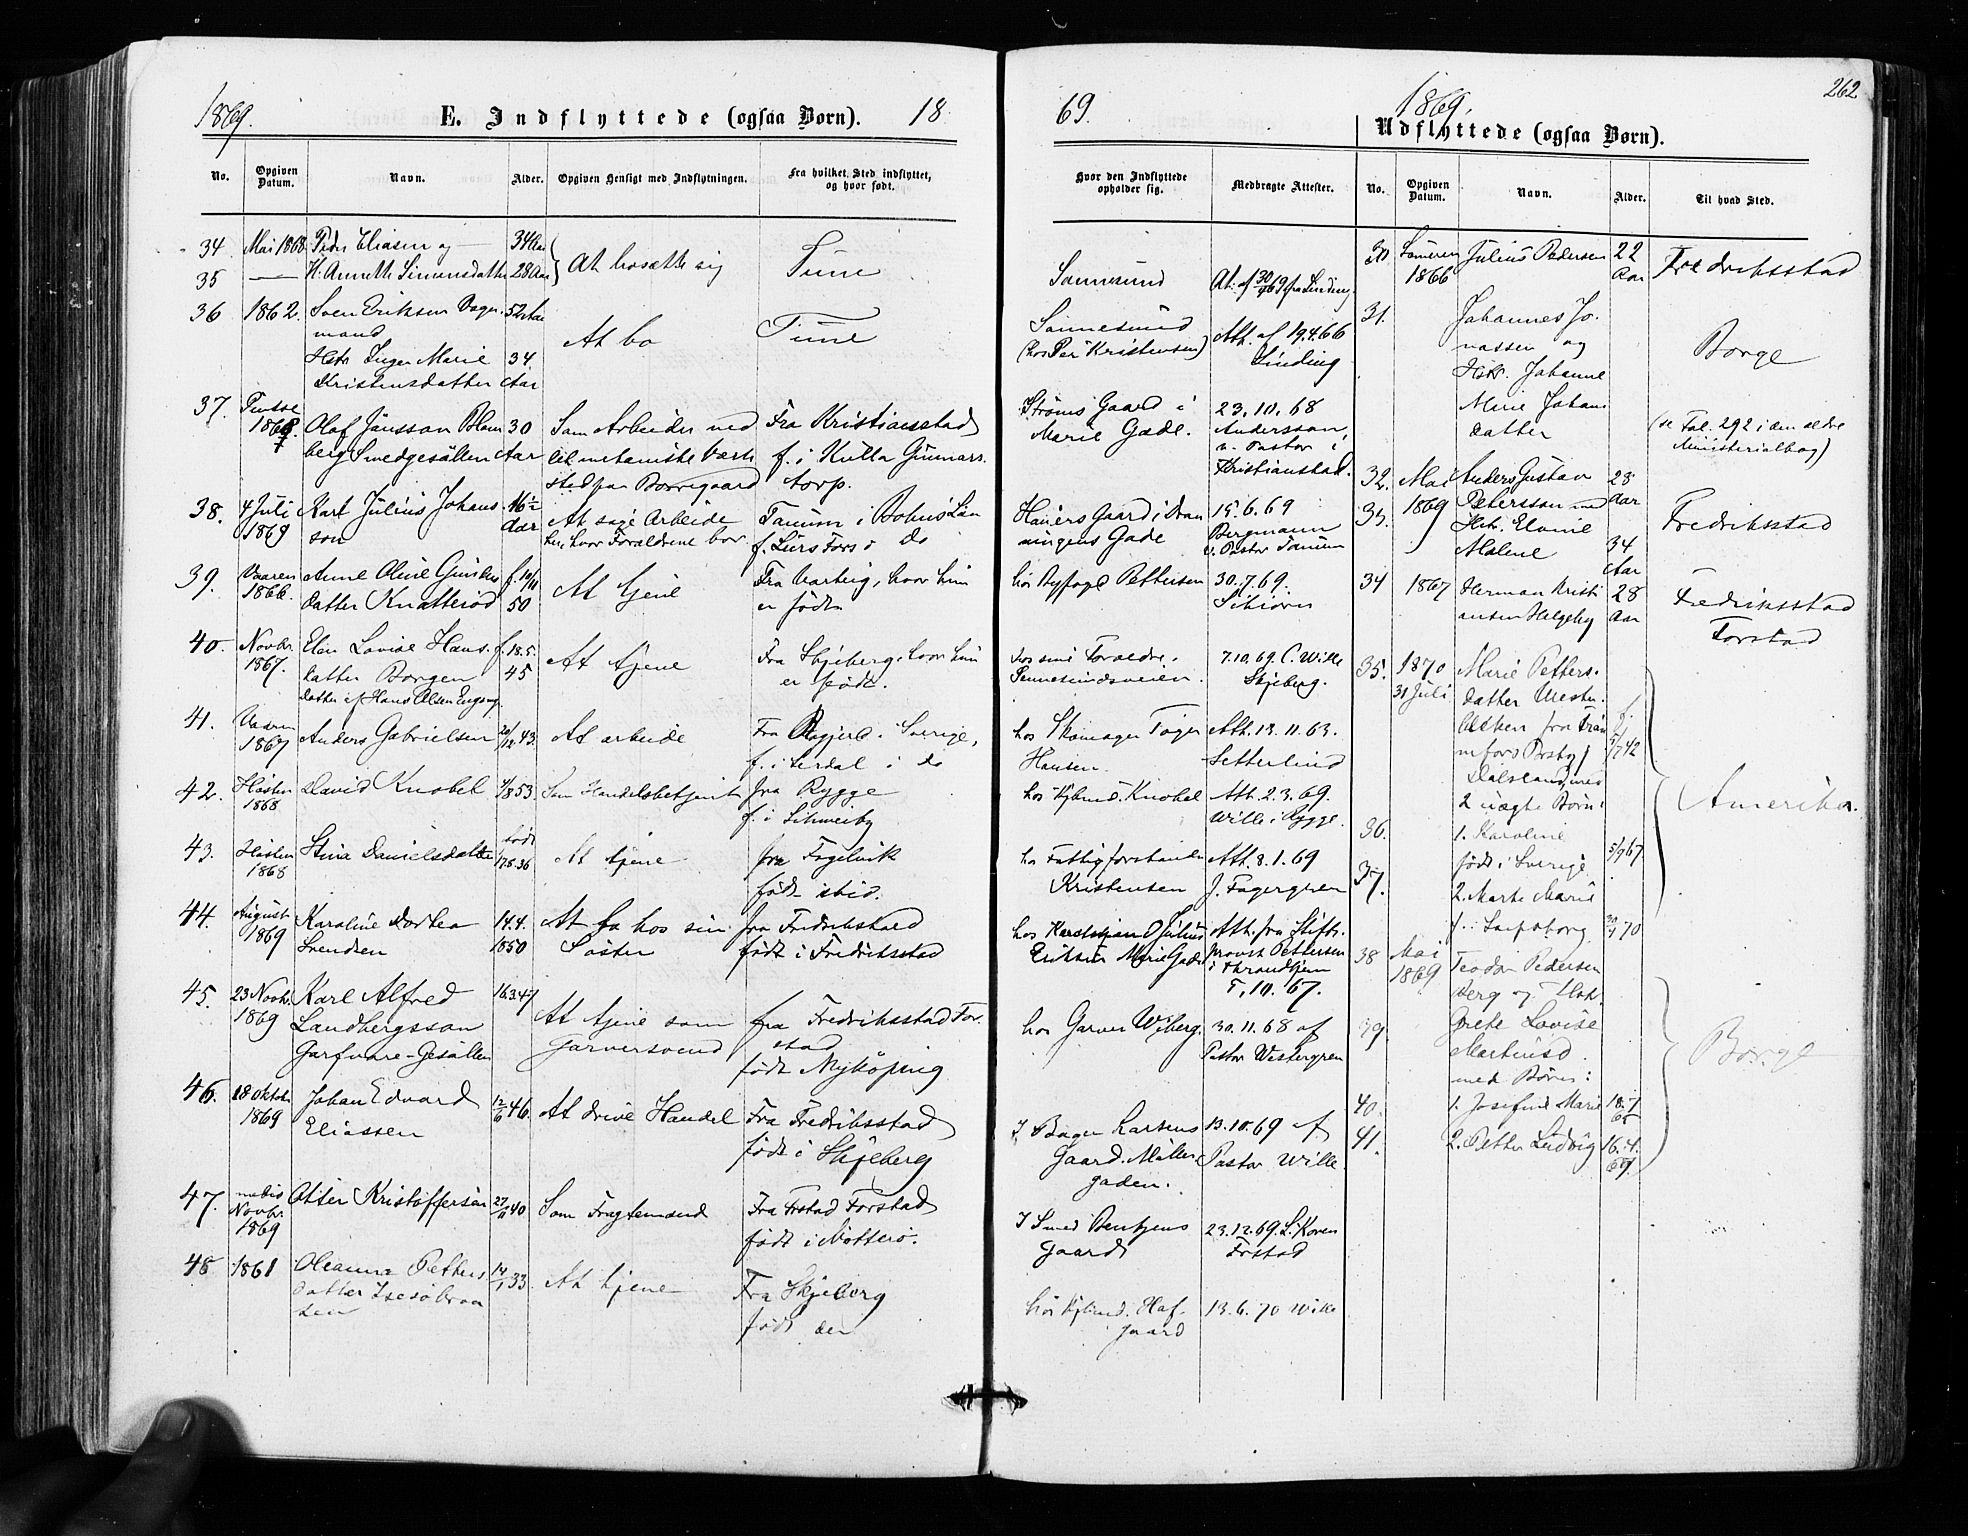 1869.
E. Indflyttede (ogsaa Børn).
18
69.
1869.
262
Udflyttede (ogsaa Børn).
No.
Opgiven Datum.
Navn.
Alder.
Opgiven Hensigt med Indflytningen.
Fra hvilket Sted indflyttet, og hvor født.
Hvor den Indflyttede opholder sig.
Medbragte Attester.
No.
Opgiven Datum.
Navn.
Alder.
Til hvad Sted.
34 Mai 1868 Peder Eliasen og 34 Aar
35 H. Annette Simensdatter 28 Aar
At bosætte sig
Tune
Sannesund
At. af 30/4 69 fra Linding
36 1862. Sven Eriksen 52 Aar
mand
Hstr. Inger Marie 34
Kristensdatter Aar
At bo
Tune
Sannesund
(hos Per Kristensen)
Att. af 19.4.66
Linding
37. Pintse
1868. Olaf Jönsson Blom 30
berg Smedgesällen Aar
Som Arbeider ved
det mekaniske Værk
sted paa Borregaard
Fra Kristianstad
f. i Kulla Gunnars
torp.
I Strøms Gaard i
Marie Gade.
23.10.68
Andersson,
v. Pastor i
Kristianstad.
38. 4 Juli
1869
Karl Julius Johans
son
16 1/2
Aar
At søge Arbeide
her, hvor Forældrene bor
Tanum i Bohus Län
f. Lurs Fors i do
Hauers Gaard i Dron
ningens Gade
15.6.69
Bergmann
v. Pastor Tanum
39. Vaaren
1866.
Anne Oline Gunders
datter Knatterød
f. 10/11
50
At tjene
Fra Varteig, hvor hun
er født
hos Byfoged Pettersen
30.7.69.
Schiörn
40. Novbr.
1867.
Elen Lovise Hans.
datter Borgen
datter af Hans Olsen
f. 18.5.
45
At tjene
Fra Skjeberg, hvor hun
er født.
hos sine Forældre.
Sannesundsveien.
7.10.69. C. Wille
Skjeberg.
41. Vaaren
1867
Anders Gabrielsen
20/12 43.
At arbeide
Fra i Sverrige,
f. i Ierdal i do
hos Skomager
Hansen.
Att. 13.11.63.
Setterlind
42. Høsten
1868
David Knobel 4/8 53.
Som Handelsbetjent
fra Rygge
f. i
hos Kjbmd. Knobel
Att. 2.3.69.
Wille i Rygge.
43. Høsten
1868
Stina Danielsdatter
født
17.8.36
At tjene
fra Fogelvik
født ibid.
hos Fattigforstander
Kristensen
Att. 8.1.69
J. Fagergren
44. August
1869
Karoline Dortea
Svendsen
14.4.
1850
At bo hos sin
Søster
fra Fredrikstad
født i Fredriksstad
hos Julius
Eriksen Marie Gade
Att. fra Stifts.
provst Pettersen
i Throndhjem
5.10.67.
45. 23 Novbr.
1869
Karl Alfred
Landbergsson
Garfvare-Gesällen
16.3.47
At tjene som
Garversvend
fra Fredriksstad For.
stad
født Nyköping
hos Garver Wiberg.
30.11.68 af
Pastor Westergren
46. 28 Oktober
1869
Johan Edvard
Eliassen
12/6 46.
At drive Handel
Fra Fredriksstad
født i Skjeberg
I Bager Larsens
Gaard. Møller
gaden.
13.10.69 af
Pastor Wille
47. medio
Novbr.
1869
Otter Kristoffersen
27/11 40
Som Fragtemand
Fra Frstad Forstad
født i Nøtterø.
I Smed Bentzens
Gaard
23.12.69. L. Koren
Frstad
48 1861
Oleanna Petters
datter
14/1 33.
At tjene
Fra Skjeberg
født der
hos Kjbmd. Haf.
gaard
13.6.70 Wille
30 Sommeren
1866
Julius Pedersen 22
Aar
Fredriksstad
31. Johannes Jo.
nassen og
Hstr. Johanne
Marie Johans
datter
Borge
(se Fol. 292 i den ældre
Ministerialbog)
32. Mai
33. 1869
Anders Gustav 28
Petersson med Aar
Hstr. Elvine
Malene 34
Aar
Fredriksstad
34 1867
Herman Kristi
ansen Helgeby
28
Aar
Fredriksstad
Forstad
35. 1870
31 Juli
Marie Petters.
datter
fra
Dalsland, med
2 uægte Børn:
f.
5/7 42
Amerika.
36. 1. Karoline
født i Sverige
5/9 67.
37. 2. Marte Marie
f. i Sarpsborg 70
38 Mai
1869
Teodor Pedersen
Berg og Hstr.
39. Grete Lovise
Martinsd.
med Børn:
Borge
40. 1. Josefine Marie 18.7
65
41. 2. Petter Ludvig 16.4.
67.